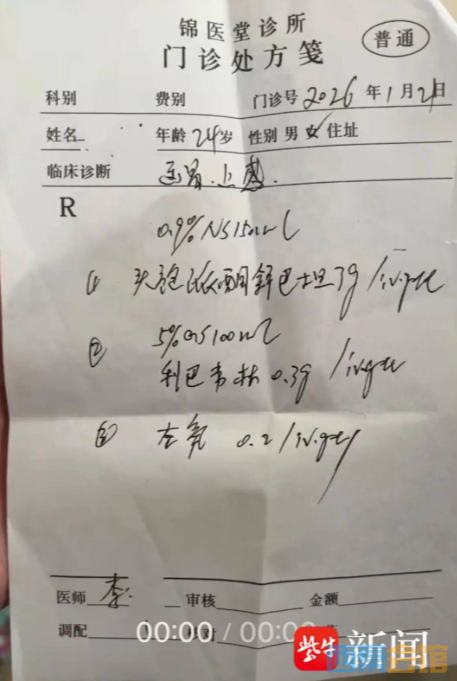 锦医堂诊所
普通
门诊处方笺
科别 费别 门诊号 2026 年 1 月 21 日
姓名 年龄 24 岁 性别 男 女 住址
临床诊断 上感.
R
0.9% NS 150ml
① 头孢哌酮舒巴坦 3g /iv.gtt
② 5% GS 100ml
利巴韦林 0.3g /iv.gtt
③ 左氧 0.2 /iv.gtt
医师 李 审核 金额
调配
00:00 / 00:00
紫牛新闻